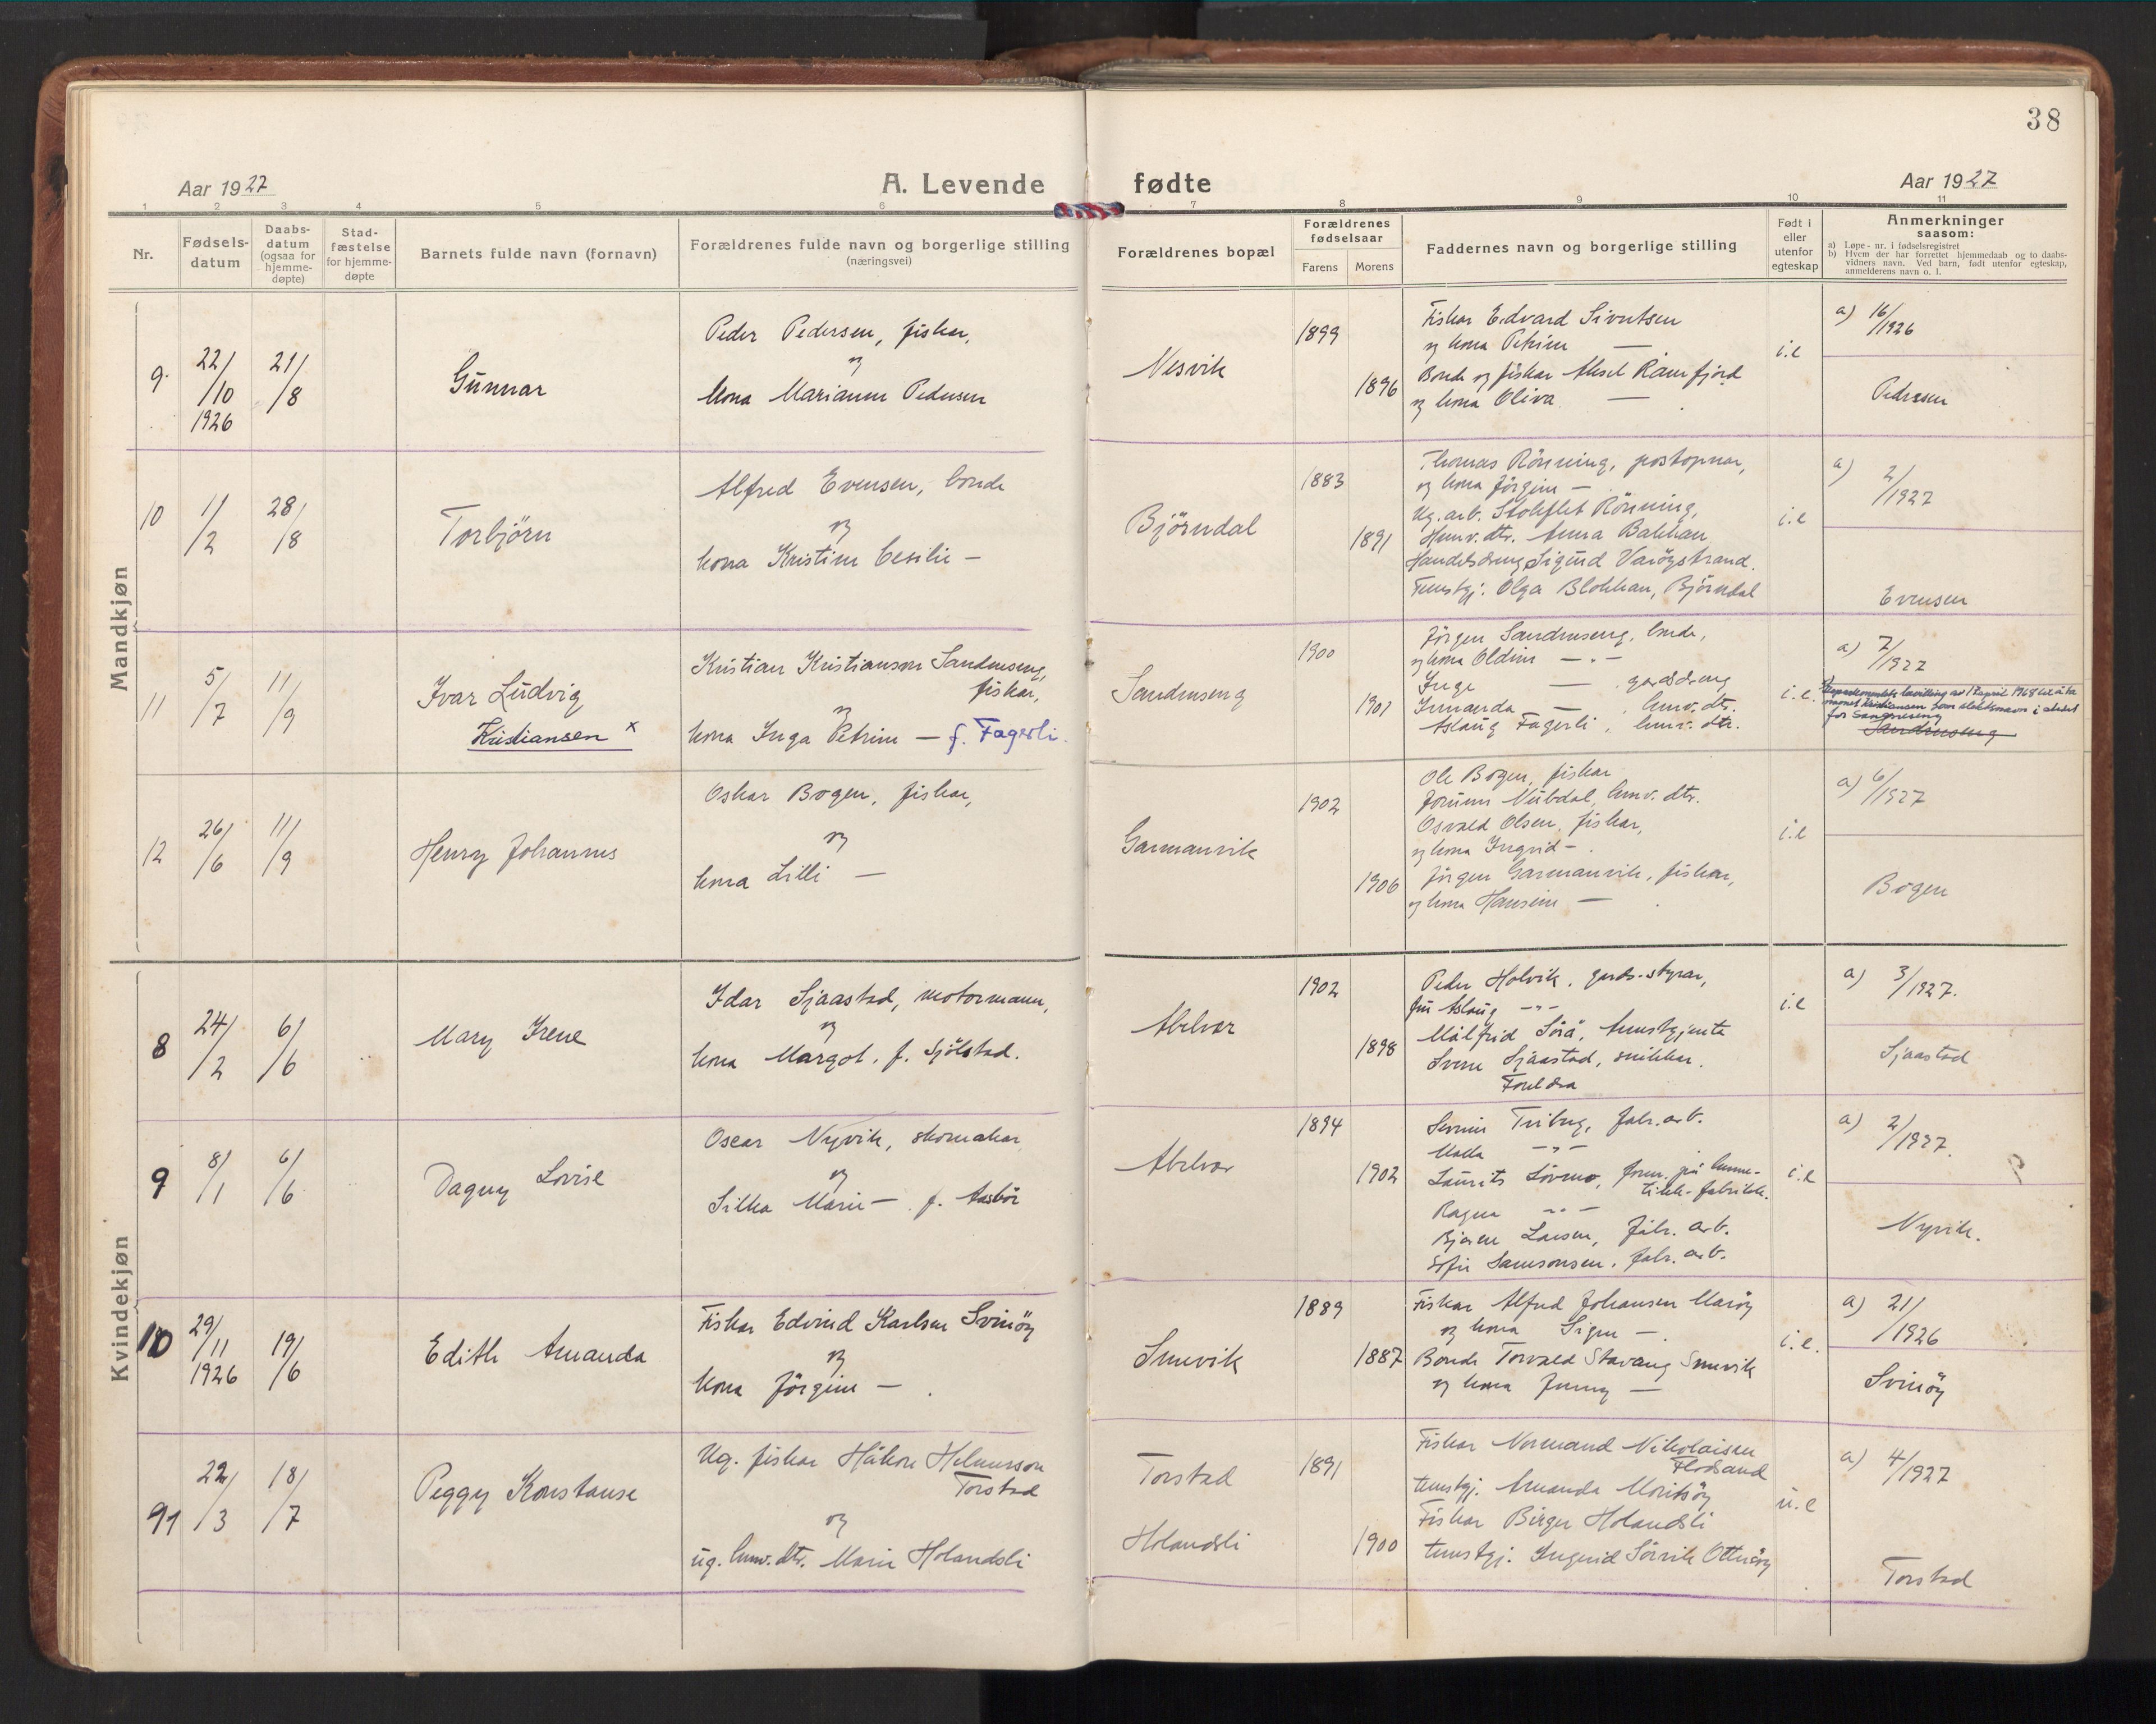 38
Aar 1927
A. Levende fødte
Aar 1927
1 2 3 4 5 6 7 8 9 10 11
Nr.
Fødsels-
datum
Daabs-
datum
(ogsaa for
hjemme-
døpte)
Stad-
fæstelse
for hjemme-
døpte
Barnets fulde navn (fornavn)
Forældrenes fulde navn og borgerlige stilling
(næringsvei)
Forældrenes bopæl
Forældrenes
fødselsaar
Farens Morens
Faddernes navn og borgerlige stilling
Født i
eller
utenfor
egteskap
Anmerkninger
saasom:
a) Løpe-nr. i fødselsregistret
b) Hvem der har forrettet hjemmedaab og to daabs-
vidners navn. Ved barn, født utenfor egteskap,
anmelderens navn o. l.
Mandkjøn
9.
22/10
1926
21/8
Gunnar
Peder Pedersen, fiskar,
og
kona Marianne Pedersen
Nesvik
1899
1896
Fiskar Edvard Sivertsen
og kona Petrine —
Bonde og fiskar Aksel Ramfjord
og kona Oliva —
i.e
a) 16/1926
Pedersen
10
1/2
28/8
Torbjörn
Alfred Evensen, bonde
og
kona Kristine Cesilie —
Björndal
1883
1891
Thomas Rönning, postopnar,
og kona Jörgine —
Ug. arb. Rönning,
Husv. dtr. Anna Bakkan
Handelsdreng Sigurd Varöystrand.
Tenestgj. Olga Blokkan, Björndal
i.e
a) 2/1927
Evensen
11
5/7
11/9
Ivar Ludvig
Kristiansen x
Kristian Kristianson Sandneseng,
fiskar,
og
kona Inga Petrine — f. Fagerli.
Sandneseng
1900
1901
Jörgen Sandneseng, bonde,
og kona Oldine — " —
Inge — gardsdreng
Irmanda — , husv. dtr.
Aslaug Fagerli, husv. dtr.
i.e.
a) 7/1927
bevilling av 17 april 1968 til å ta
navnet Kristiansen som slektsnavn i stedet
for Sandneseng
Sandneseng
12
26/6
11/9
Henry Johannes
Oskar Bogen, fiskar,
og
kona Lilli —
Garmanvik
1902
1906
Ole Bogen, fiskar
Jorunn Nubdal, husv. dtr.
Osvald Olsen, fiskar,
og kona Ingrid —.
Jörgen Garmanvik, fiskar,
og kona Hansine —
i.e
a) 6/1927
Bogen
Kvindekjøn
8
24/2
6/6
Mary Irene
Idar Sjaastad, motormann,
og
kona Margot, f. Sjölstad.
Abelvær
1902
1898
Peder Holvik, gards-styrar,
fru Aslaug — " —
Målfrid Sörå, tenestgjente
Sverre Sjaastad, snikkar.
Foreldra
i.e
a) 3/1927.
Sjaastad
9
8/1
6/6
Dagny Lovise
Oscar Nyvik, skomakar
og
Silka Marie — . f. Aasbör
Abelvær
1894
1902
Severin Triberg, fabr. arb.
— " —
Laurits Lörmo, form. på herme-
tikk-fabrikk.
Ragna — " —
Bjarne Larsen, fabr. arb.
Sofie Samsonsen, fabr. arb.
i.e
a) 2/1927.
Nyvik.
10
29/11
1926
19/6
Edith Amanda
Fiskar Edvind Karlsen Svinöy
og
kona Jörgine — .
Simvik
1889
1887
Fiskar Alfred Johansen Maröy
og kona Signe —.
Bonde Torvald Stavang Simvik
og kona Jenny —
i.e.
a) 21/1926
Svinöy
91
22/3
18/7
Peggy Konstanse
Ug. fiskar Håkon Helmersson
Torstad
og
ug. husv. dtr. Marie Holandsli
Torstad
Holandsli
1891
1900
Fiskar Normand Nikolaisen
Flodsand
tenestgj. Amanda Moritsöy
Fiskar Birger Holandsli
tenestgj. Ingerid Sörvik Otteröy
u.e
a) 4/1927
Torstad